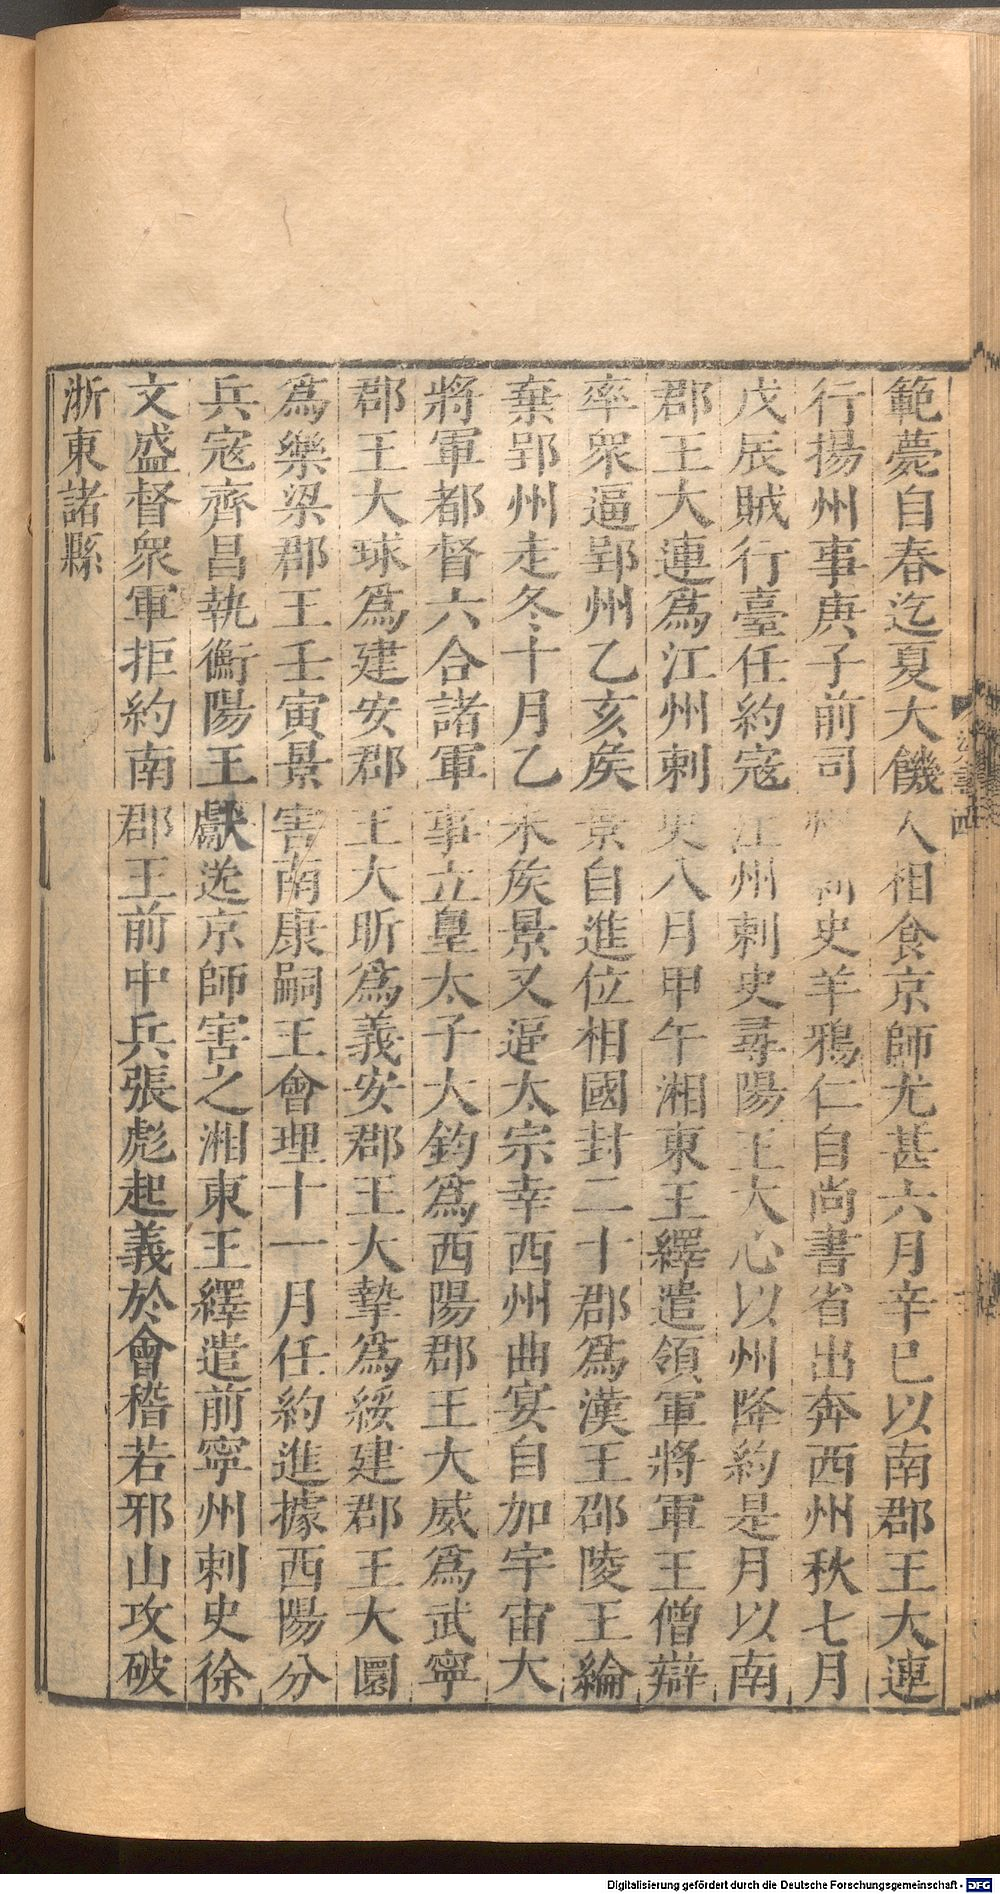 範薨自春迄夏大饑人相食京師尤甚六月辛巳以南郡王大連
行揚州事庚子前司州刺史羊鴉仁自尚書省出奔西州秋七月
戊辰賊行臺任約寇江州刺史尋陽王大心以州降約是月以南
郡王大連為江州刺史八月甲午湘東王繹遣領軍將軍王僧辯
率衆逼郢州乙亥矦景自進位相國封二十郡為漢王邵陵王綸
棄郢州走冬十月乙未矦景又逼太宗幸西州曲宴自加宇宙大
將軍都督六合諸軍事立皇太子大鈞為西陽郡王大威為武寧
郡王大球為建安郡王大昕為義安郡王大摯為綏建郡王大圜
為樂梁郡王壬寅景害南康嗣王會理十一月任約進據西陽分
兵寇齊昌執衡陽王獻送京師害之湘東王繹遣前寧州刺史徐
文盛督衆軍拒約南郡王前中兵張彪起義於會稽若邪山攻破
浙東諸縣
Digitalisierung gefördert durch die Deutsche Forschungsgemeinschaft - DFG